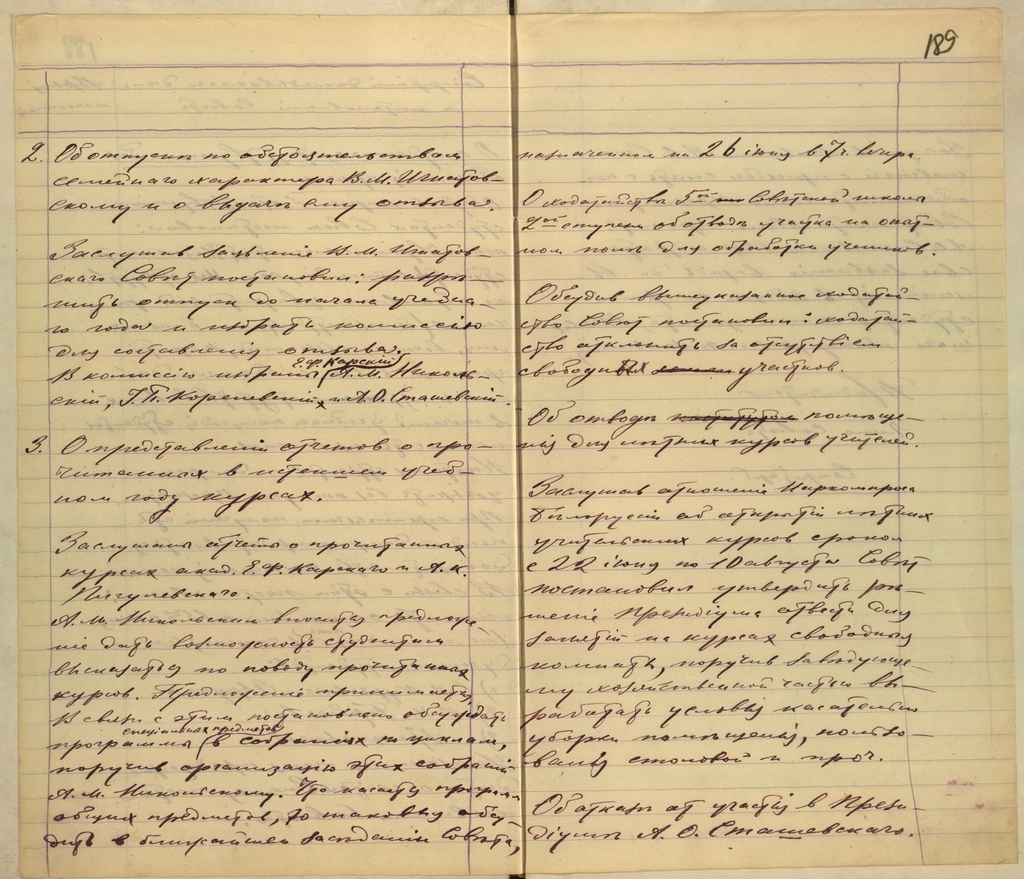 189
2. Об отпускѣ по обстоятельствам
семейнаго характера В. М. Игнатов-
скому и о выдачѣ ему отзыва.
Заслушав заявленіе В. М. Игнатов-
скаго Совѣт постановил: разрѣ-
шить отпуск до начала учебна-
го года и избрать комиссію
для составленія отзыва.
Е. Ф. Карскій
В комиссію избраны А. М. Николь-
скій, Г. П. Кореневскій, и А. О. Сташевскій.
3. О представленіи отчетов о про-
читанных в истекшем учеб-
ном году курсах.
Заслушаны отчеты о прочитанных
курсах акад. Е. Ф. Карскаго и А. К.
Пигулевскаго.
А. М. Никольским вносится предложе-
ніе дать возможность студентам
высказаться по поводу прочитанных
курсов. Предложеніе принимается,
В связи с этим постановлено обсуждать
спеціальных предметов
программы в собраніях по циклам,
поручив организацію этих собраній
А. М. Никольскому. Что касается програм
общих предметов, то таковыя обсу-
дить в ближайшем засѣданіи Совѣта,
назначенном на 26 іюня в 7 ч. вечера.
О ходатайствѣ 5ой Совѣтской школы
2ой ступени об отводѣ участка на опыт-
ном полѣ для обработки учеников.
Обсудив вышеуказанное ходатай-
ство Совѣт постановил: ходатай-
ство отклонить за отсутствіем
свободных участков.
Об отводѣ помѣще-
нія для лѣтних курсов учителей.
Заслушав отношеніе Наркомпроса
Бѣлоруссіи об открытіи лѣтних
учительских курсов сроком
с 22 іюня по 10 августа Совѣт
постановил утвердить рѣ-
шеніе Президіума отвесть для
занятій на курсах свободныя
комнаты, поручив завѣдующе-
му хозяйственной частью вы-
работать условія касательно
уборки помѣщенія, пользо-
ванія столовой и проч.
Об отказѣ от участія в Прези-
діумѣ А. О. Сташевскаго.